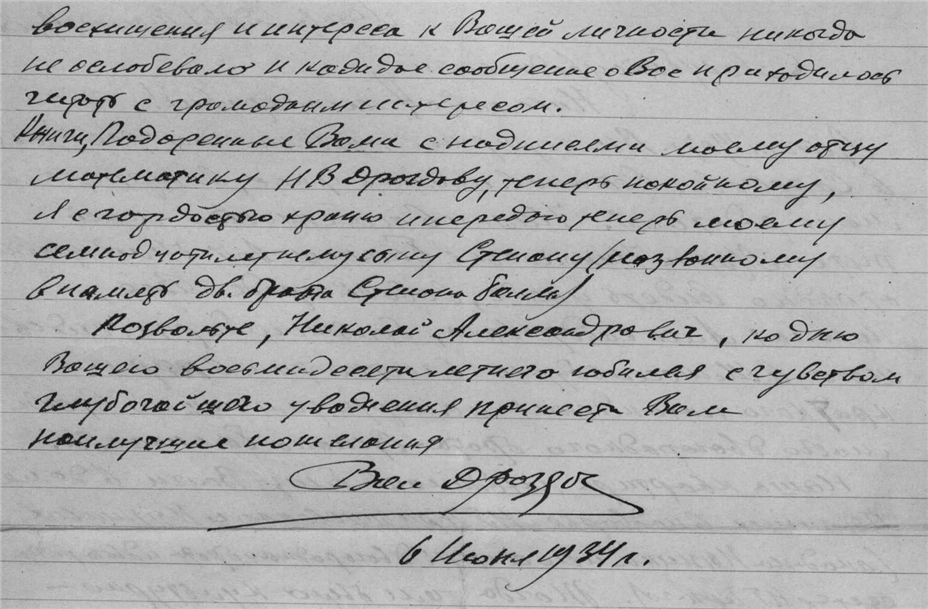 восхищения и интереса к Вашей личности никогда
не ослабевало и каждое сообщение о Вас приходилось
читать с громадным интересом.
Книги, Подаренные Вами с надписями моему отцу
математику Н В Дроздову, теперь покойному,
я с гордостью храню и передаю теперь моему
семнадцатилетнему сыну Степану (названному
в память дв. брата Степана Балма)
Позвольте, Николай Александрович, ко дню
Вашего восьмидесятилетнего юбилея с чувством
глубочайшего уважения принести Вам
наилучшие пожелания
Вал Дроздов
6 Июня 1934 г.